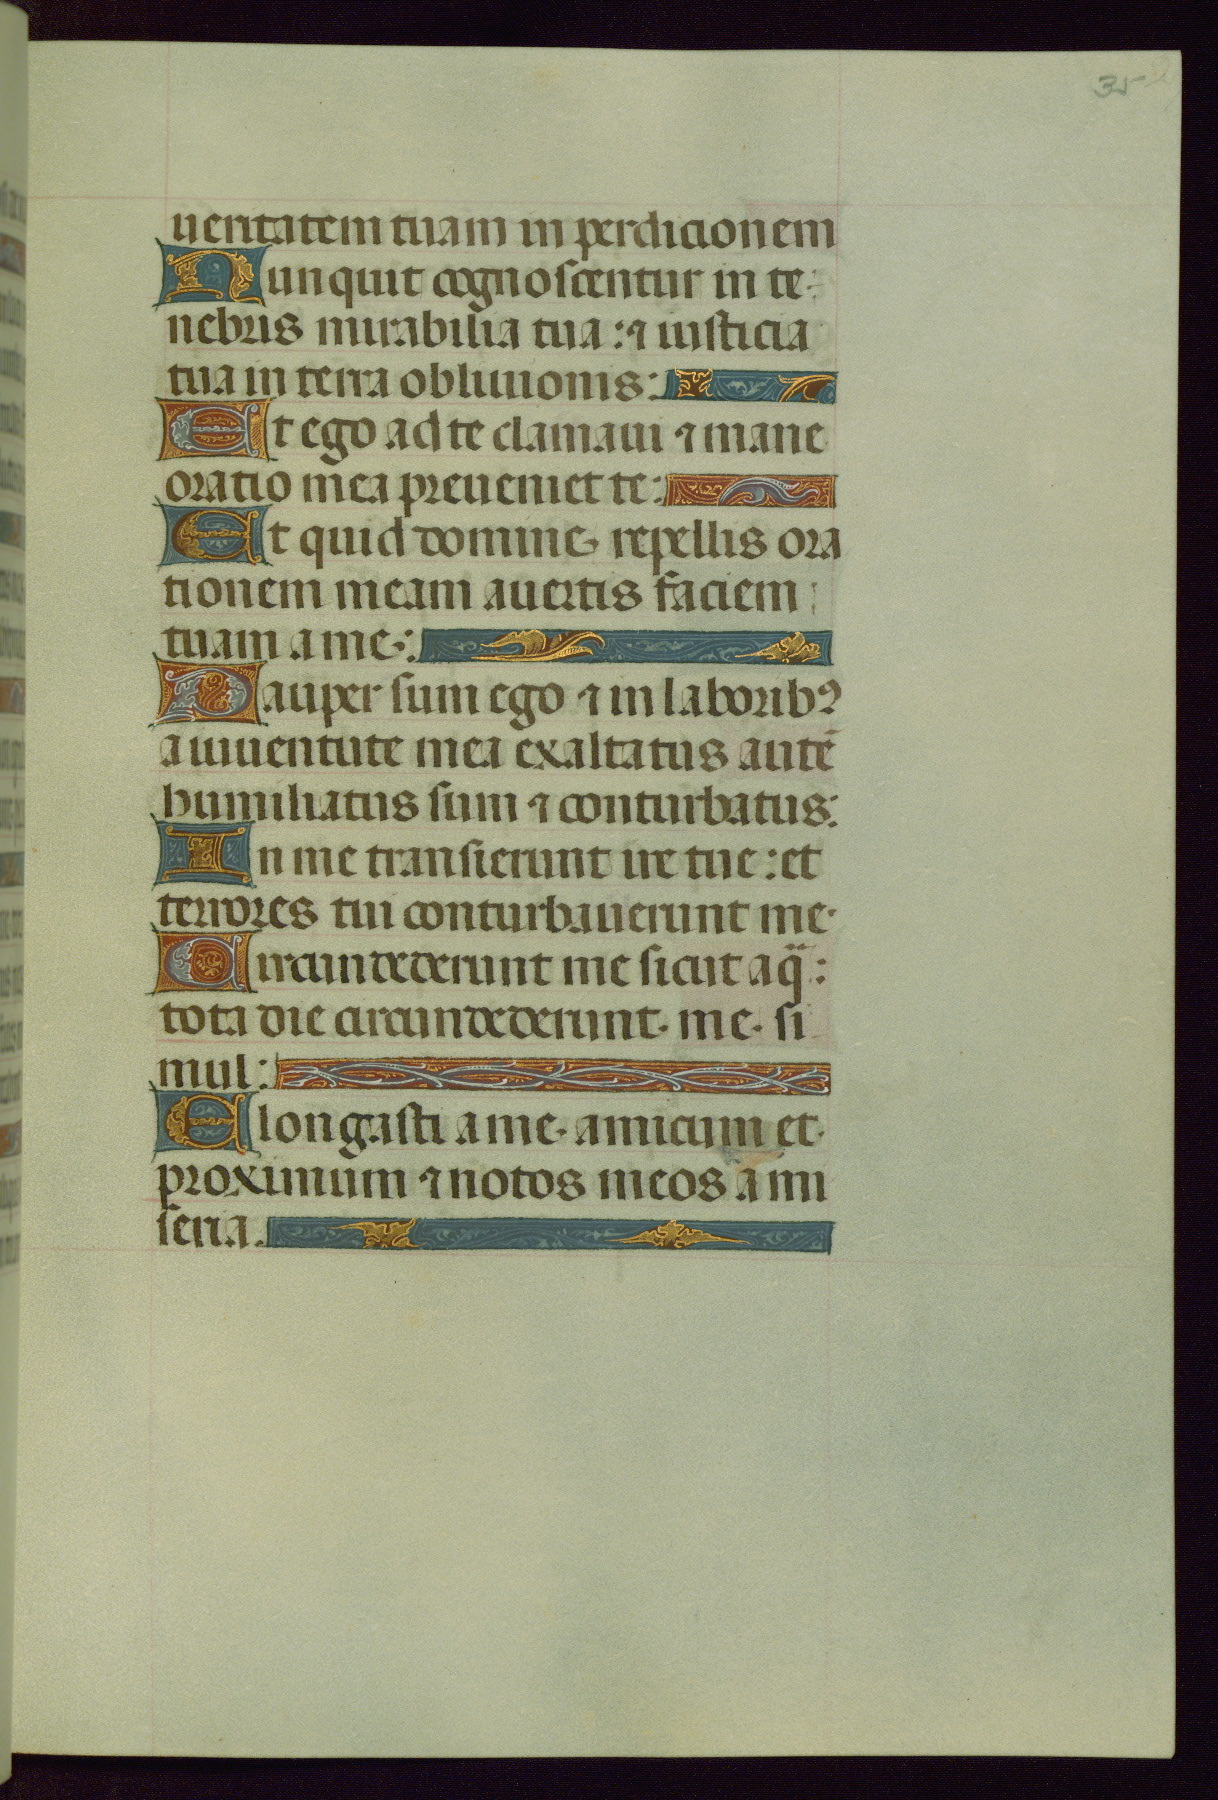 35
ueritatem tuam in perdicionem
Nunquit cognoscentur in te-
nebris mirabilia tua : ⁊ iusticia
tua in terra obliuionis :
Et ego ad te clamaui ⁊ mane
oratio mea preueniet te :
Et quid domine repellis ora
tionem meam auertis faciem
tuam a me :
Pauper sum ego ⁊ in laborib9
a iuuentute mea exaltatus autē
humiliatus sum ⁊ conturbatus :
In me transierunt ire tue : et
terrores tui conturbauerunt me.
Circundederunt me sicut aqᷓ :
tota die circundederunt. me. si
mul :
Elongasti a me. amicum et
proximum ⁊ notos meos a mi
seria.